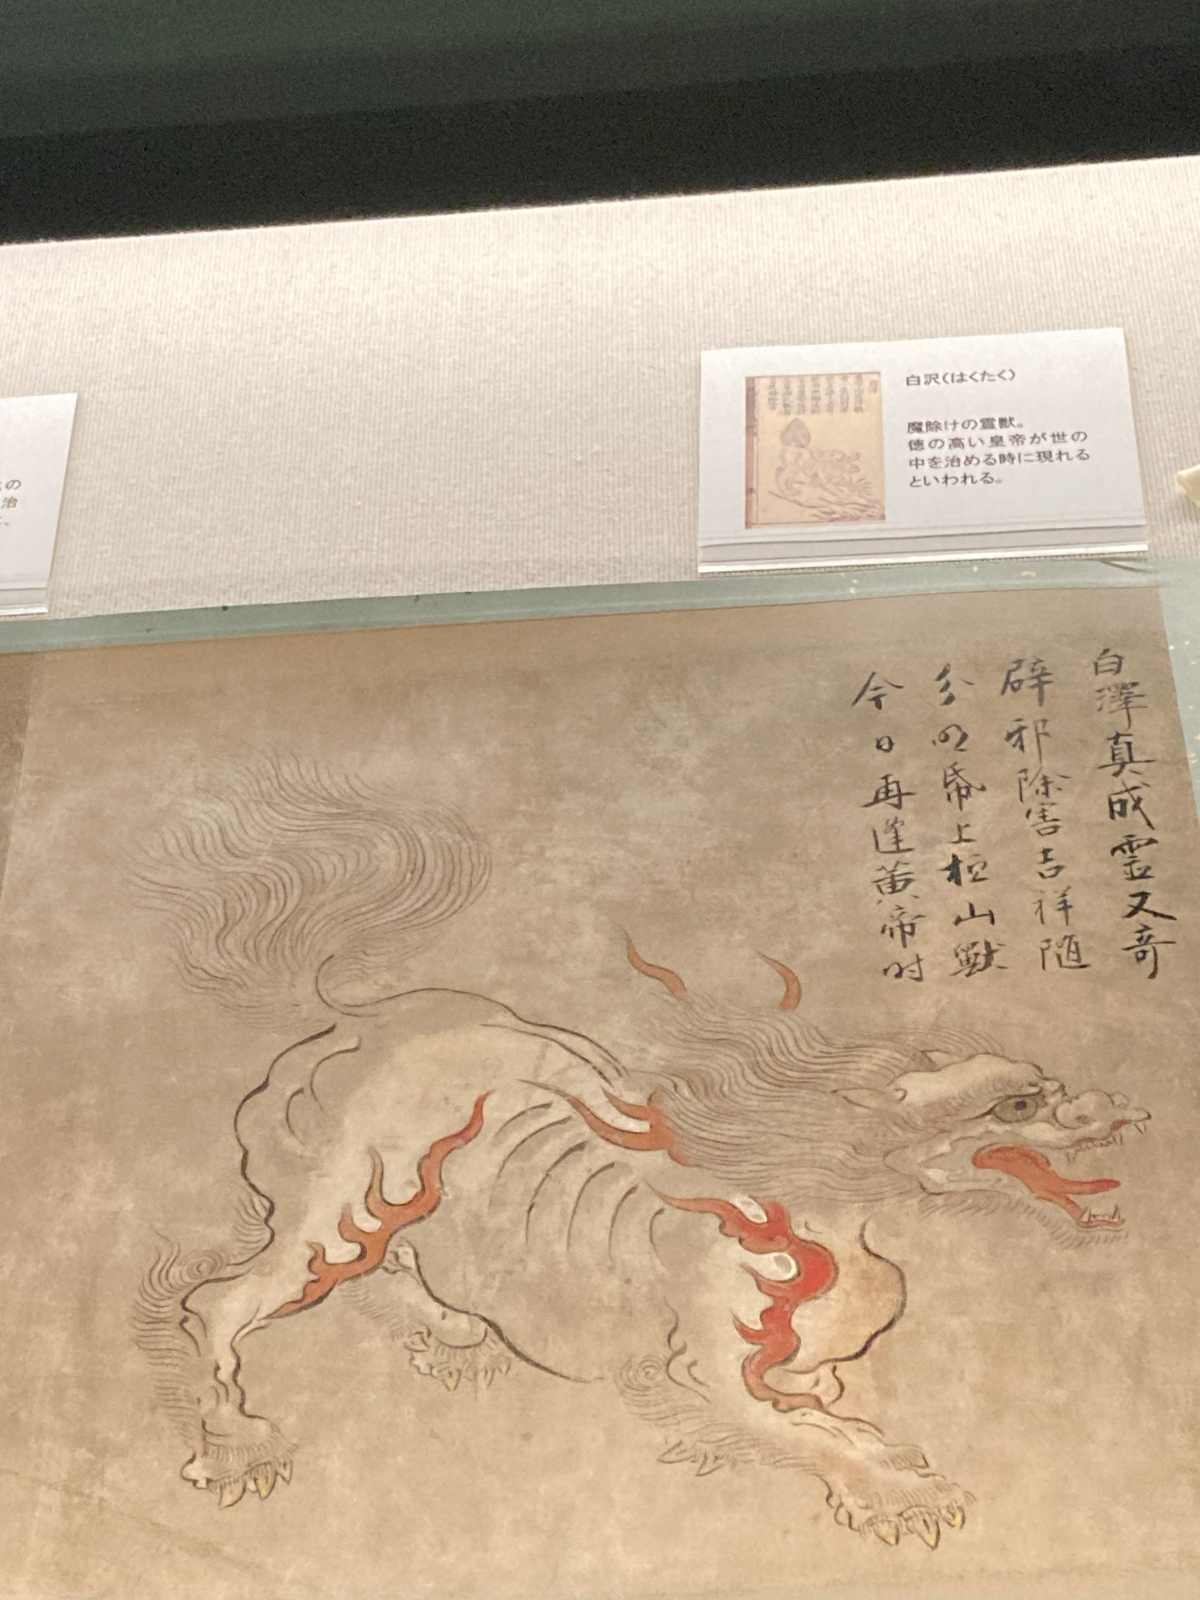 白沢(はくたく)
魔除けの霊獣。
徳の高い皇帝が世の
中を治める時に現れる
といわれる。
白澤真成霊又奇
辟邪除害吉祥随
分明帋上桓山獣
今日再逢黄帝时
の
治